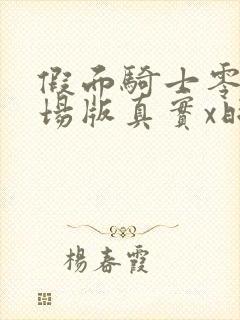 假面騎士零
場版真實x時
楊春霞